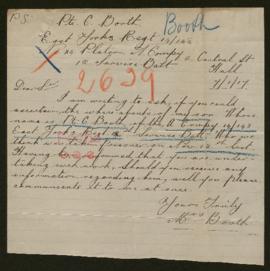 P.S.
Pte C. Booth
Booth
East Yorks Regt
Platoon Compy
1st Service Batt
Central St
Hull
2629
Dear Sir
I am writing to ask, if you could
ascertain the where abouts of my son. Whose
name is Pte C Booth of the A Company
East Yorks Regt Service Batt. Who we
think was taken prisoner on or
Having been informed that you are under-
taking such work. Should you receive any
information regarding him, will you please
communicate it to me at once.
Yours Truly
Mrs Booth